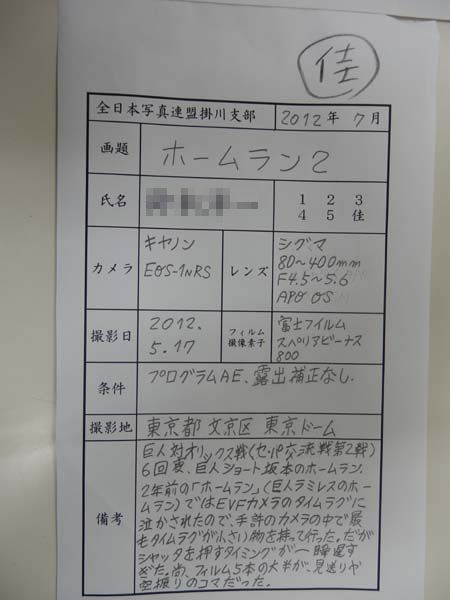 佳
全日本写真連盟掛川支部 2012年 7月
画題 ホームラン2
氏名 1 2 3
4 5 佳
カメラ キヤノン
EOS-1NRS
レンズ シグマ
80~400mm
F4.5~5.6
APO OS
撮影日 2012.
5.17
フィルム
撮像素子
富士フイルム
スペリアビーナス
800
条件 プログラムAE、露出補正なし.
撮影地 東京都 文京区 東京ドーム
備考
巨人対オリックス戦(セ・パ交流戦第2戦)
6回裏、巨人ショート坂本のホームラン.
2年前の「ホームラン」(巨人ラミレスのホー
ムラン)ではEVFカメラのタイムラグに
泣かされたので、手許のカメラの中で最
もタイムラグが小さい物を持って行った。だが
シャッタを押すタイミングが一瞬遅す
ぎた。尚、フィルム5本の大半が、見送りや
空振りのコマだった。